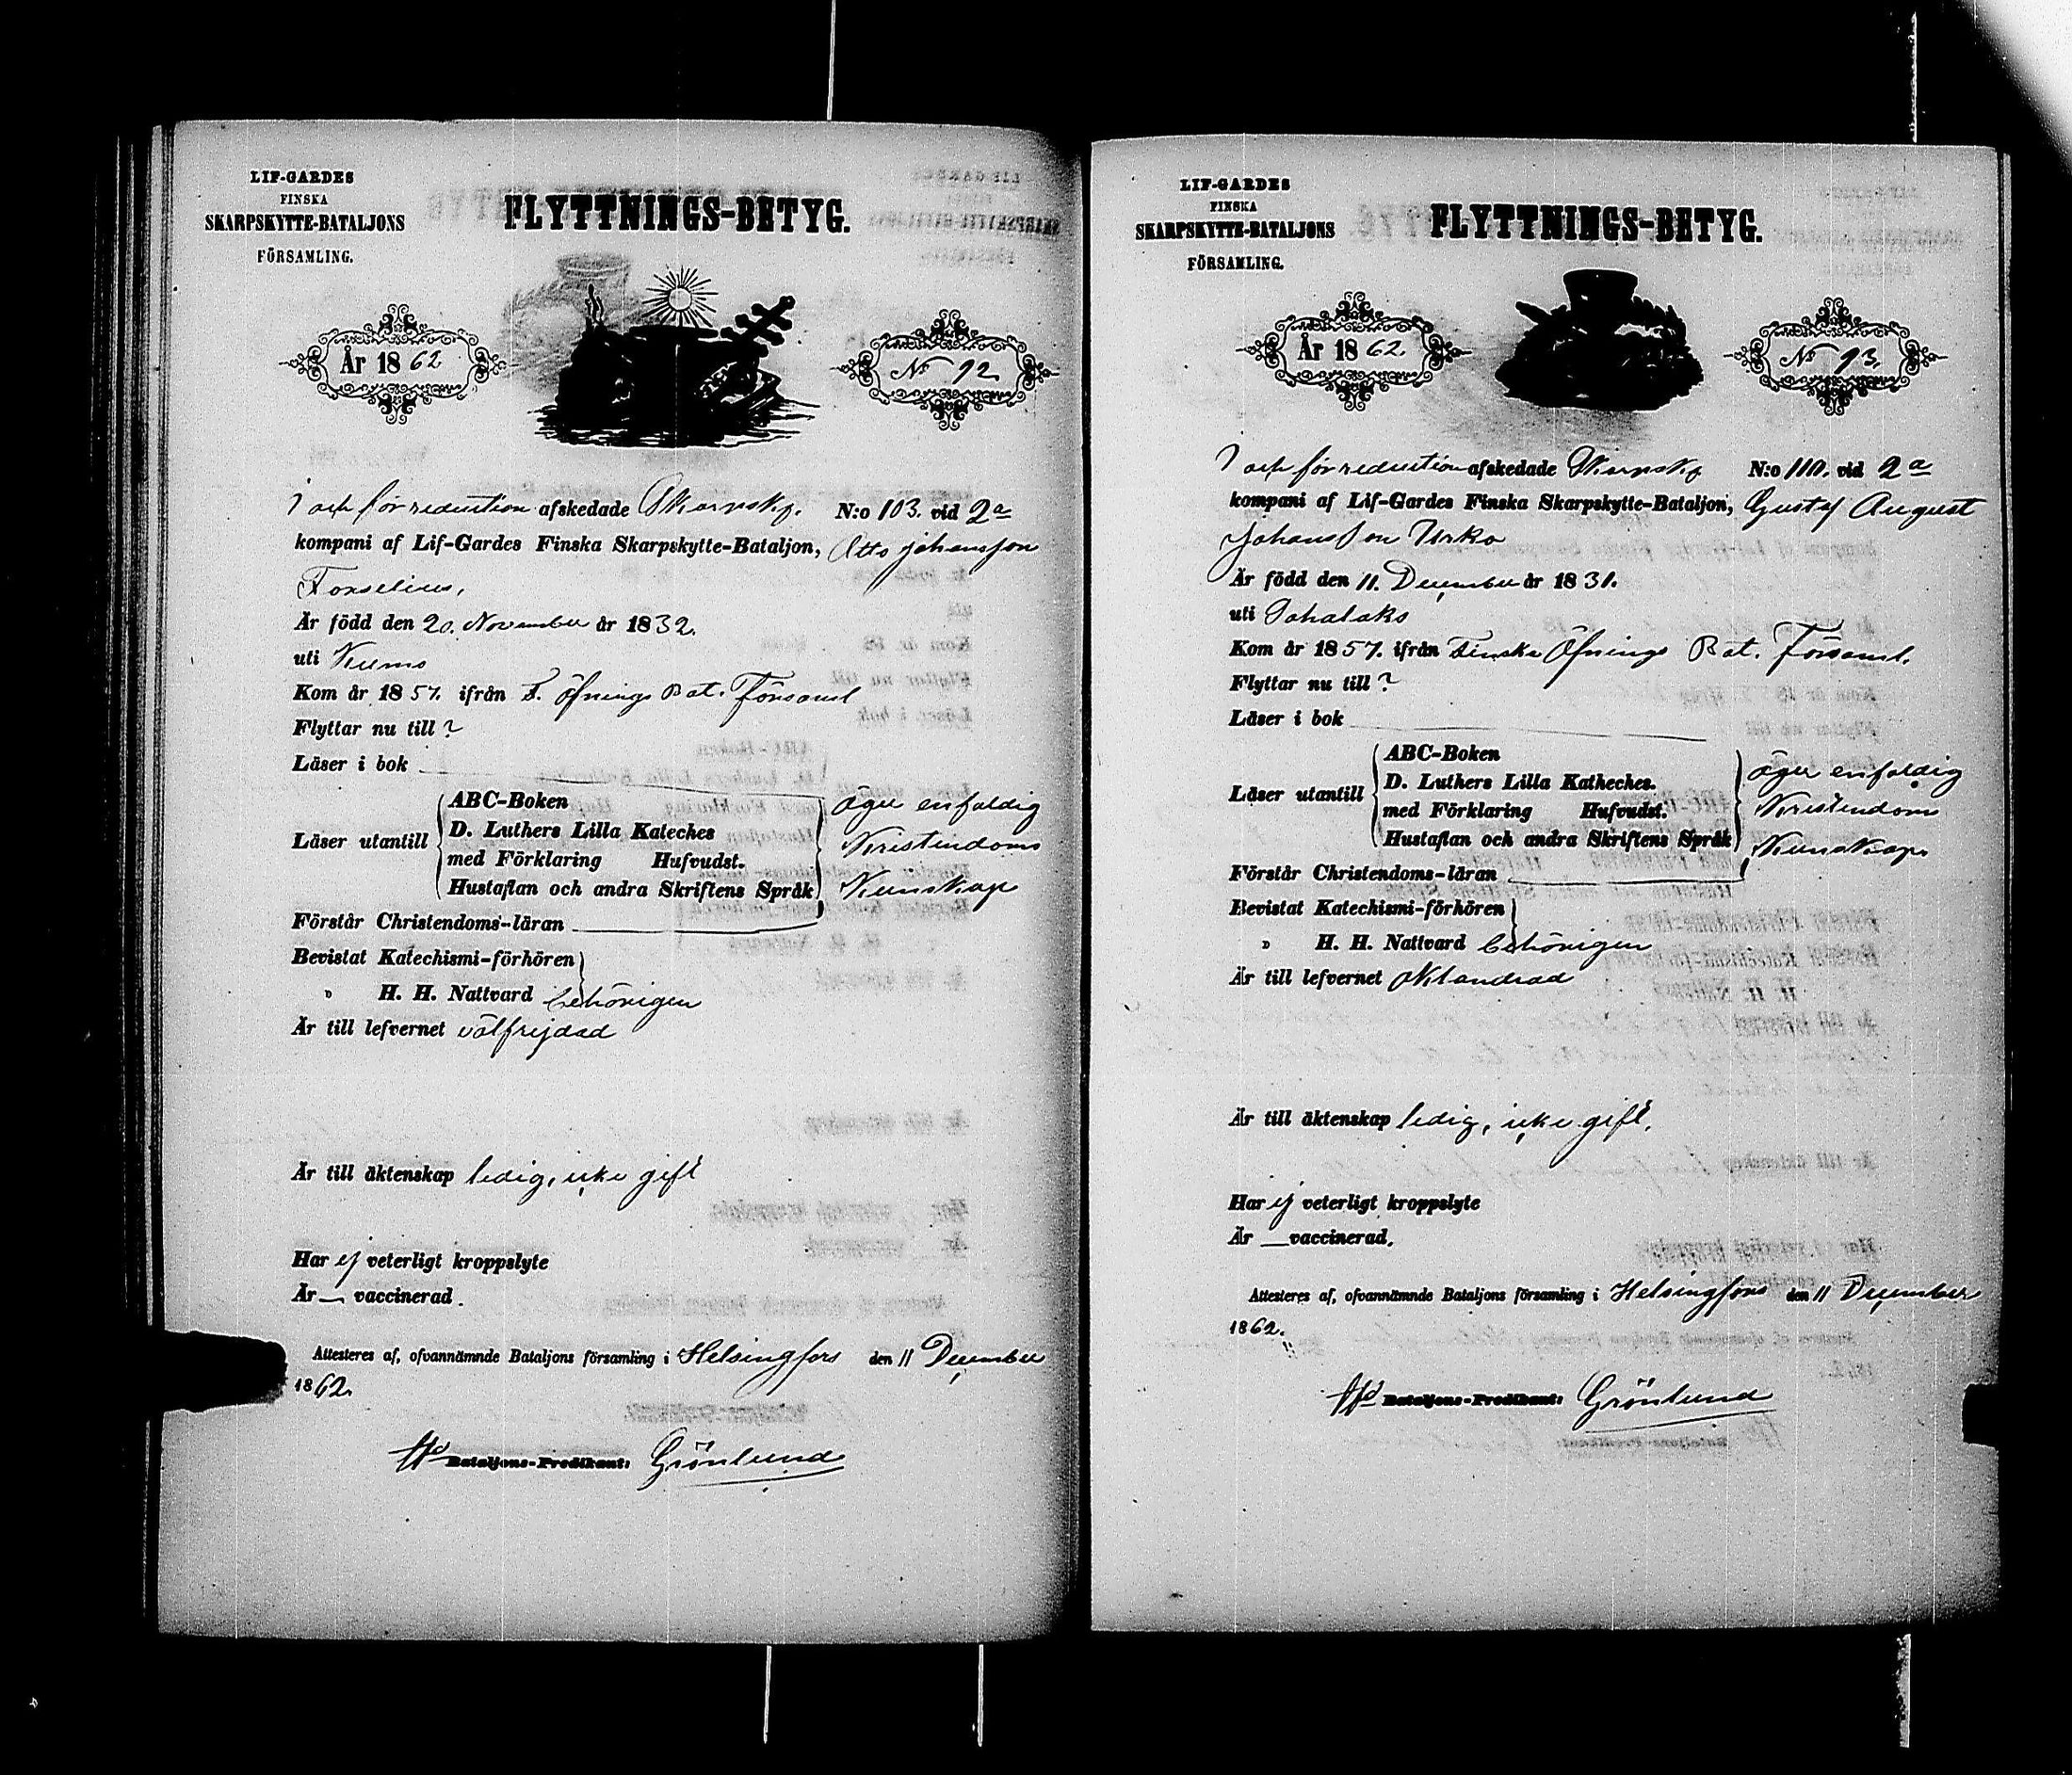 LIF-GARDES
FINSKA
SKARPSKYTTE-BATALJONS
FÖRSAMLING.
FLYTTNINGS-BETYG.
År 1862
No 92
I och för reduction afskedade Skarpsky. N:o 103. vid 2a
kompani af Lif-Gardes Finska Skarpskytte-Bataljon, Otto Johansson
Forselius,
Är född den 20. November år 1832.
uti Kumo
Kom år 1857. ifrån F. Öfnings Bat. Församl
Flyttar nu till?
Läser i bok
Läser utantill
ABC-Boken
D. Luthers Lilla Kateches
med Förklaring Hufvudst.
Hustaflan och andra Skriftens Språk
äger enfaldig
Kristendoms
Kunskap
Förstår Christendoms-läran
Bevistat Katechismi-förhören
" H. H. Nattvard behörigen
Är till lefvernet välfrejdad
Är till äktenskap ledig, icke gift
Har ej veterligt kroppslyte
Är — vaccinerad.
Attesteres af, ofvannämnde Bataljons församling i Helsingfors den 11 December
1862.
Bataljons-Predikant: Grönlund
LIF-GARDES
FINSKA
SKARPSKYTTE-BATALJONS
FÖRSAMLING.
FLYTTNINGS-BETYG.
År 1862.
No 93.
I och för reduction afskedade Skarpsky N:o 110. vid 2a
kompani af Lif-Gardes Finska Skarpskytte-Bataljon, Gustaf August
Johansson Urko
Är född den 11. December år 1831.
uti
Kom år 1857. ifrån Finska Öfnings Bat. Församl.
Flyttar nu till?
Läser i bok
Läser utantill
ABC-Boken
D. Luthers Lilla Katheches.
med Förklaring Hufvudst.
Hustaflan och andra Skriftens Språk
äger enfaldig
Kristendoms
Kunskap
Förstår Christendoms-läran
Bevistat Katechismi-förhören
" H. H. Nattvard behörigen
Är till lefvernet oklandrad
Är till äktenskap ledig, icke gift,
Har ej veterligt kroppslyte
Är — vaccinerad.
Attesteres af, ofvannämnde Bataljons församling i Helsingfors den 11 December
1862.
Bataljons-Predikant: Grönlund